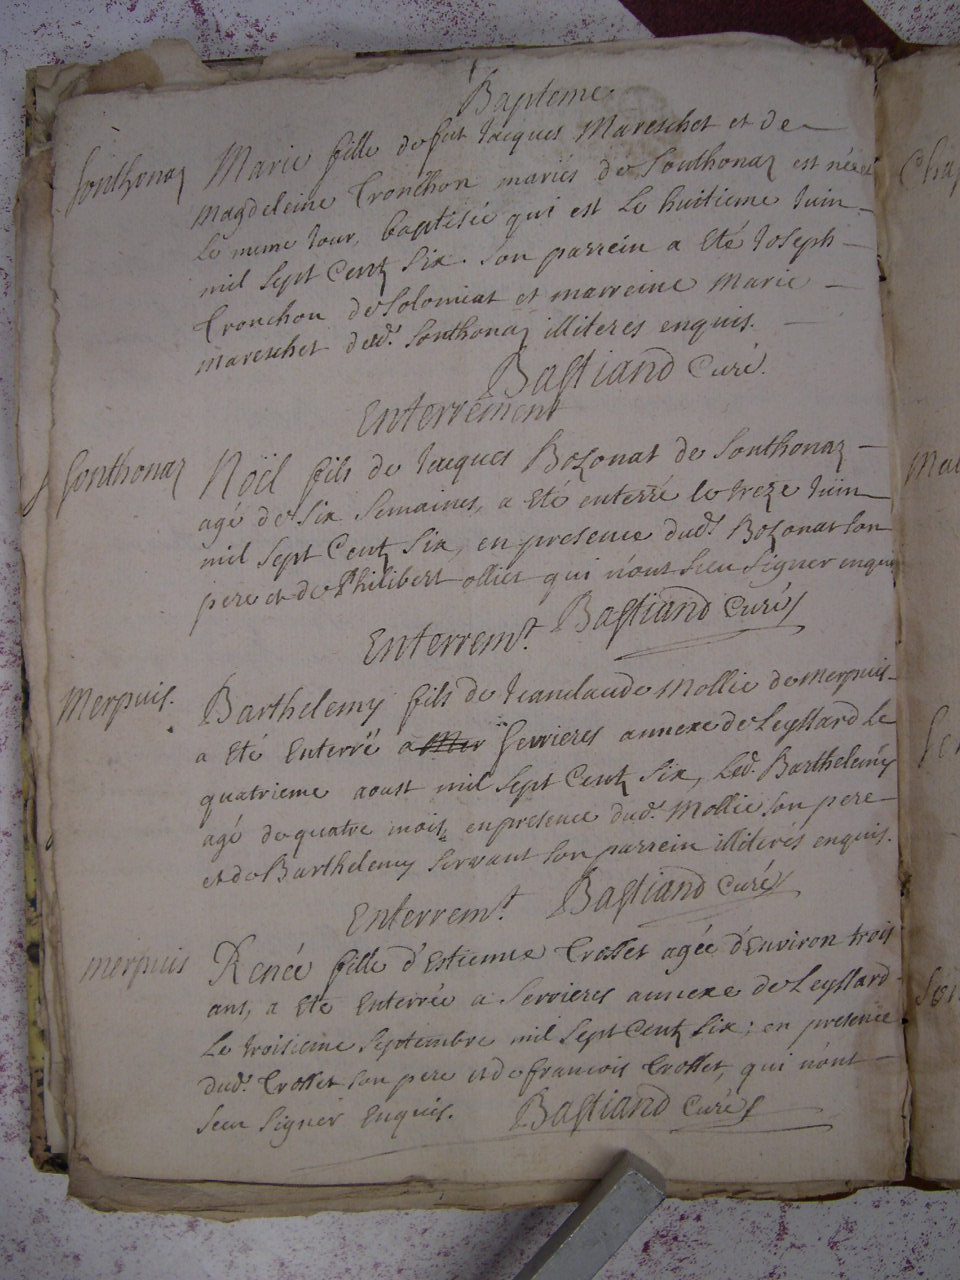 Bapteme
Sonthonaz Marie fille de fut Jacques Mareschet et de
Magdeleine Cronchon mariés de Sonthonaz est née et
Le meme Jour, baptisée qui est Le huitieme Juin
mil Sept Centz Six. Son parrein a Eté Joseph
Cronchon de Solomiat et marreine Marie
Mareschet dud. Sonthonaz illiteres enquis.
Bastiand Curé.
Enterrement
Sonthonaz Noël fils de Jacques Bozonat de Sonthonaz
agé de Six Semaines, a Eté enterré le treze Juin
mil Sept Centz Six, en presence dud. Bozonat son
pere et de Philibert ollier qui n'ont Sceu Signer enquis
Enterremt. Bastiand Curé
Merpuis. Barthelemy fils de Jeanclaude Mollie de Merpuis
a Eté Enterré a Mer Serrieres annexe de Leyssard Le
quatrieme aoust mil Sept Centz Six, Led. Barthelemy
agé de quatre mois, en presence dud. Mollie son pere
et de Barthelemy Servant son parrein illiterés enquis.
Enterremt. Bastiand Curé
Merpuis Renée fille d'Estienne Crosset agée d'Environ trois
ans, a Eté Enterrée a Serrieres annexe de Leyssard
Le troisieme Septembre mil Sept Centz Six; en presence
dud. Crosset son pere et de francois Crosset, qui n'ont
Sceu Signer Enquis. Bastiand Curé